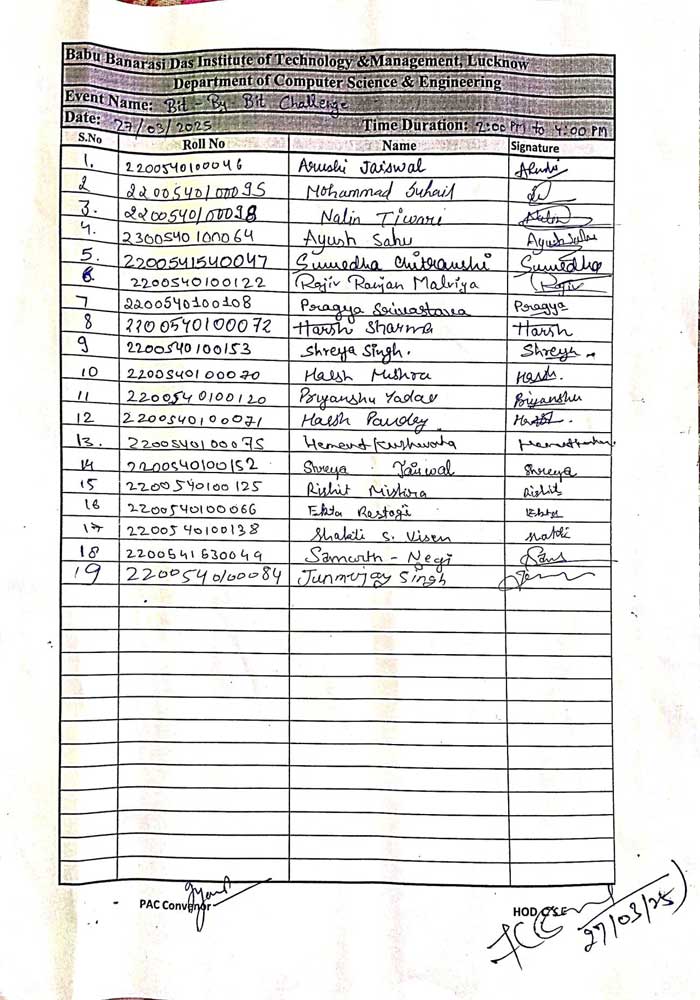 Babu Banarasi Das Institute of Technology &Management, Lucknow
Department of Computer Science & Engineering
Event Name: Bit - By Bit Challenge
Date: 27/03/2025 Time Duration: 2:00 PM to 4:00 PM
S.No Roll No Name Signature
1. 2200540100046 Arushi Jaiswal Arushi
2 2200540100095 Mohammad Suhail
3. 2200540100098 Nalin Tiwari Nalin
4. 2300540100064 Ayush Sahu Ayush Sahu
5. 2200541540047 Sumedha Chitranshi Sumedha
6 2200540100122 Rajiv Ranjan Malviya Rajiv
7 2200540100108 Pragya Srivastava Pragya
8 2200540100072 Harsh Sharma Harsh
9 2200540100153 Shreya Singh. Shreya
10 2200540100070 Harsh Mishra Harsh.
11 2200540100120 Priyanshu Yadav Priyanshu
12 2200540100071 Harsh Pandey. Harsh.
13. 2200540100075 Hemant Kushwaha
14 2200540100152 Shreya Jaiswal Shreya
15 2200540100125 Rishit Mishra Rishit
16 2200540100066 Ekta Rastogi Ekta
17 2200540100138 Shakti S. Visen Shakti
18 2200541530049 Samarth - Negi Sam
19 2200540100084 Junmejay Singh
PAC Convenor
HOD CSE
27/03/25